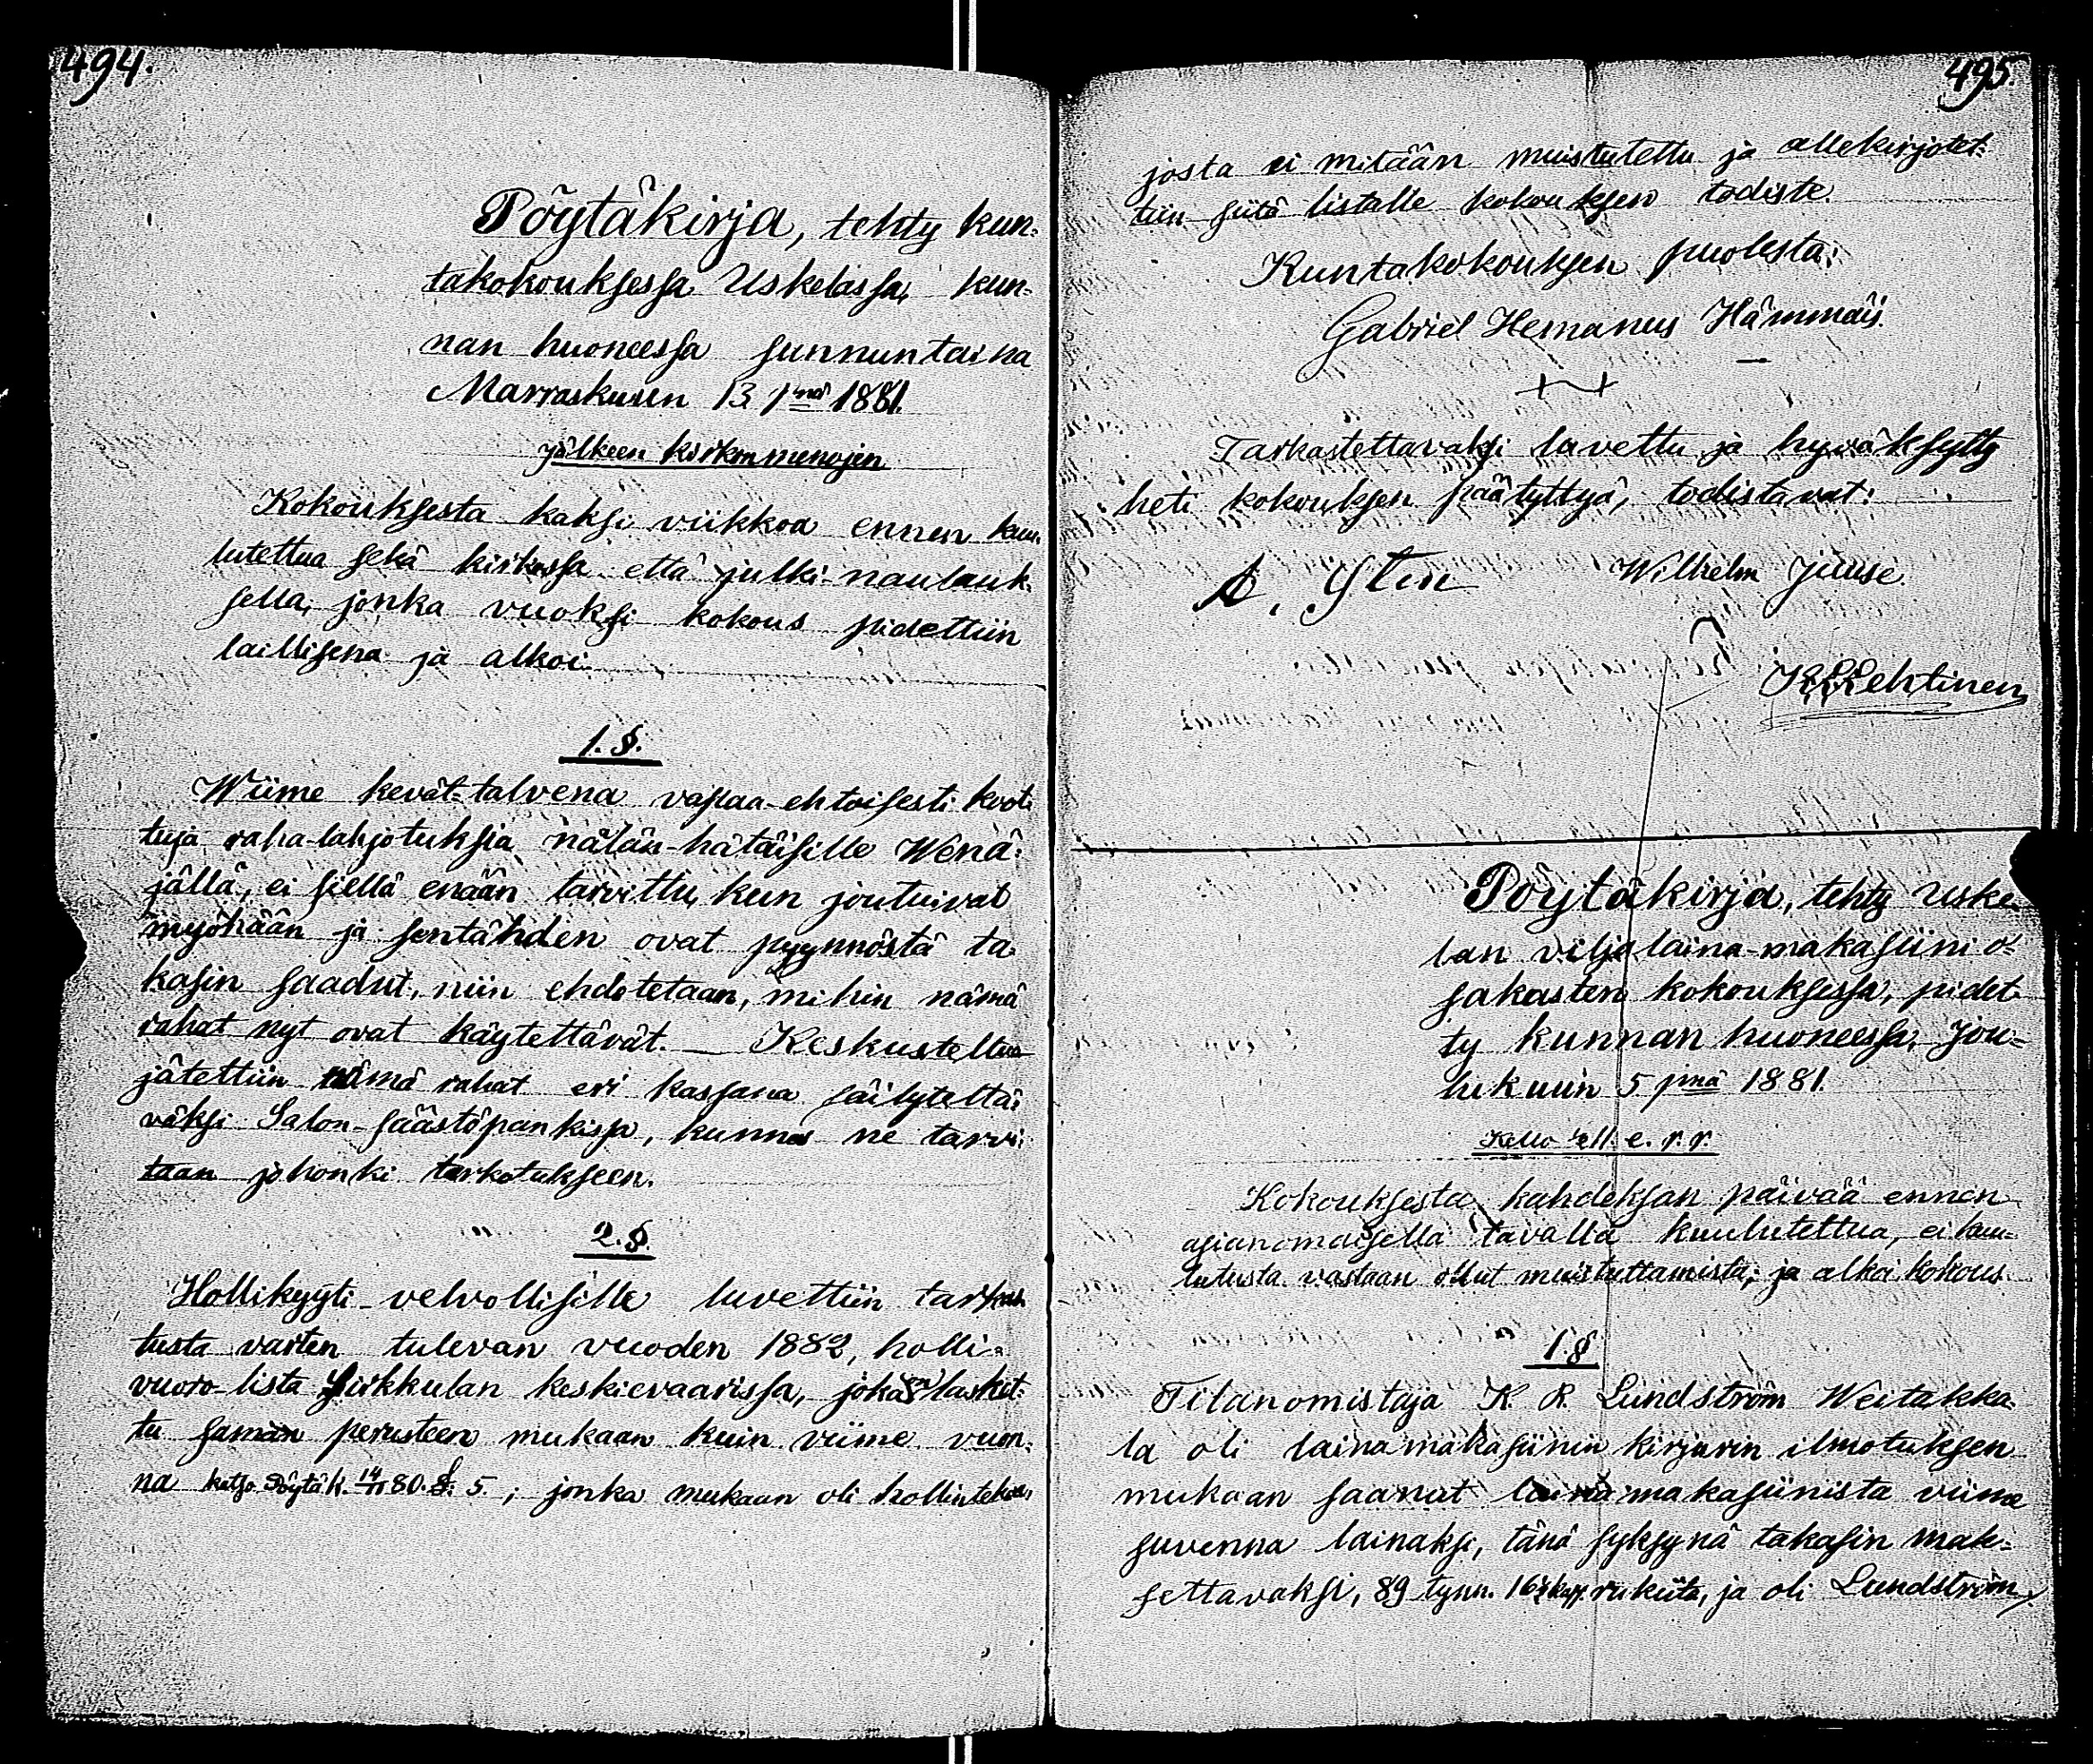 494.
Pöytäkirja, tehty kun-
takokouksessa Uskelassa, kun-
nan huoneessa sunnuntaina
Marraskuun 13 p:nä 1881.
jälkeen kirkonmenojen
Kokouksesta kaksi viikkoa ennen kuu-
lutettua sekä kirkossa että julki-naulauk-
sella, jonka vuoksi kokous pidettiin
laillisena ja alkoi
1. §.
Wiime kevät-talvena vapaa-ehtoisesti koot-
tuja raha-lahjotuksia nälän-hätäisille Wenä-
jällä, ei siellä enään tarvittu, kun joutuivat
myöhään ja sentähden ovat pyynnöstä ta-
kasin saadut, niin ehdotetaan, mihin nämä
rahat nyt ovat käytettävät. — Keskusteltua
jätettiin nämä rahat eri kassana säilytettä-
väksi Salon-säästöpankissa, kunnes ne tarvi-
taan johonki tarkotukseen.
2. §.
Hollikyyti-velvollisille luvettiin tarkas-
tusta varten tulevan vuoden 1882, holli-
vuoro-lista Hirkkulan keskievaarissa, joka on laskit-
tu saman perusteen mukaan kuin viime vuon-
na katso Pöytäk. 14/11 80. §: 5. ; jonka mukaan oli hollin
495.
josta ei mitään muistutettu ja allekirjotet-
tiin siitä listalle kokouksen todiste.
Kuntakokouksen puolesta:
Gabriel Hemanus Hämmäis.
Tarkastettavaksi luvettu ja hyväksytty
heti kokouksen päätyttyä, todistavat:
A. Sten Wilhelm Juuse.
Lehtinen
Pöytäkirja, tehty Uske-
lan viljalaina-makasiini o-
sakasten kokouksessa, pidet-
ty kunnan huoneessa, Jou-
lukuun 5 p:nä 1881.
Kello 1/2 11. e. p. p.
Kokouksesta kahdeksan päivää ennen
asianomaisella tavalla kuulutettua, ei kuu-
lutusta vastaan ollut muistuttamista; ja alkoi kokous.
1. §
Tilanomistaja K. R. Lundström Weitakka-
la oli lainamakasiinin kirjurin ilmotuksen
mukaan saanut lainamakasiinista viime
suvenna lainaksi, tänä syksynä takasin mak-
settavaksi, 89 tynn. 16 1/2 kapp. rukiita, ja oli Lundström